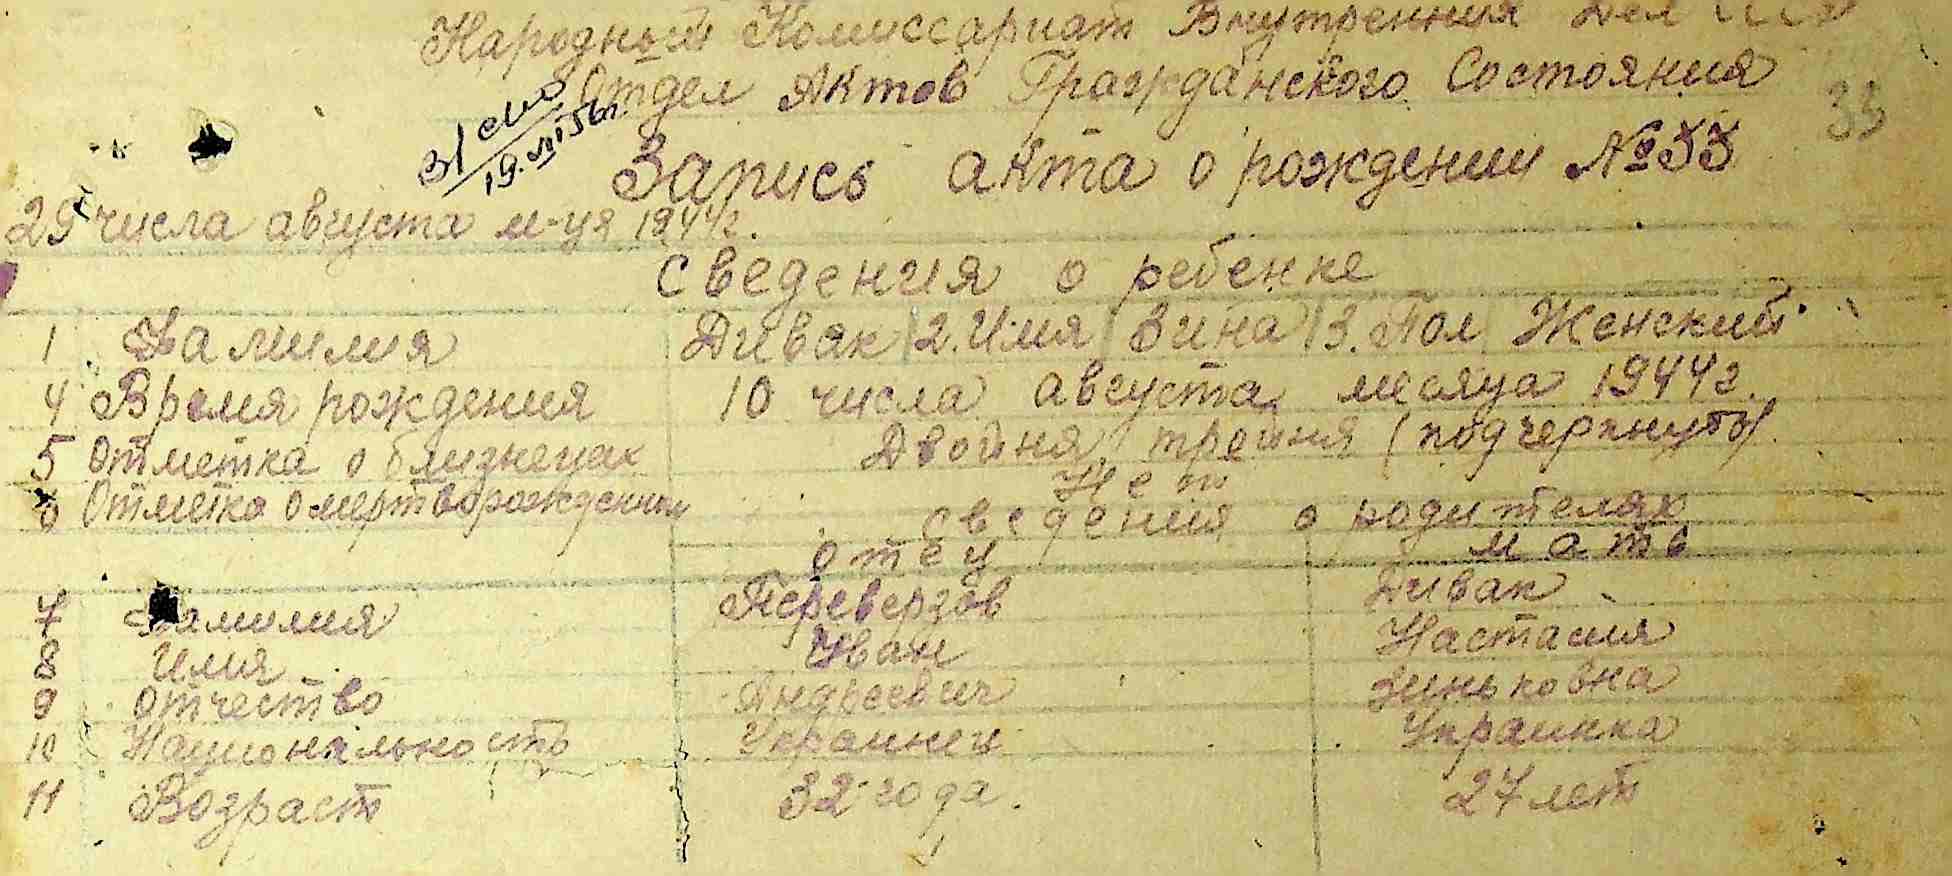 Народный Комиссариат Внутренния Дел
Отдел Актов Гражданского Состояния
33
19.VII 56г.
Запись акта о рождении №33
29 числа августа м-ця 1944г.
Сведения о ребенке
1 Фамилия Дивак 2. Имя Зина 3. Пол Женский
4 Время рождения 10 числа августа месяца 1944г.
5 Отметка о близнецах Двойня тройня (подчеркнуть)
6 Отметка о мертворождении Нет
сведения о родителях
отец мать
7 Фамилия Переверзов Дивак
8 Имя Иван Настасия
9 Отчество Андреевич Зиньковна
10 Национальность Украинец Украинка
11 Возраст 32 года. 27 лет